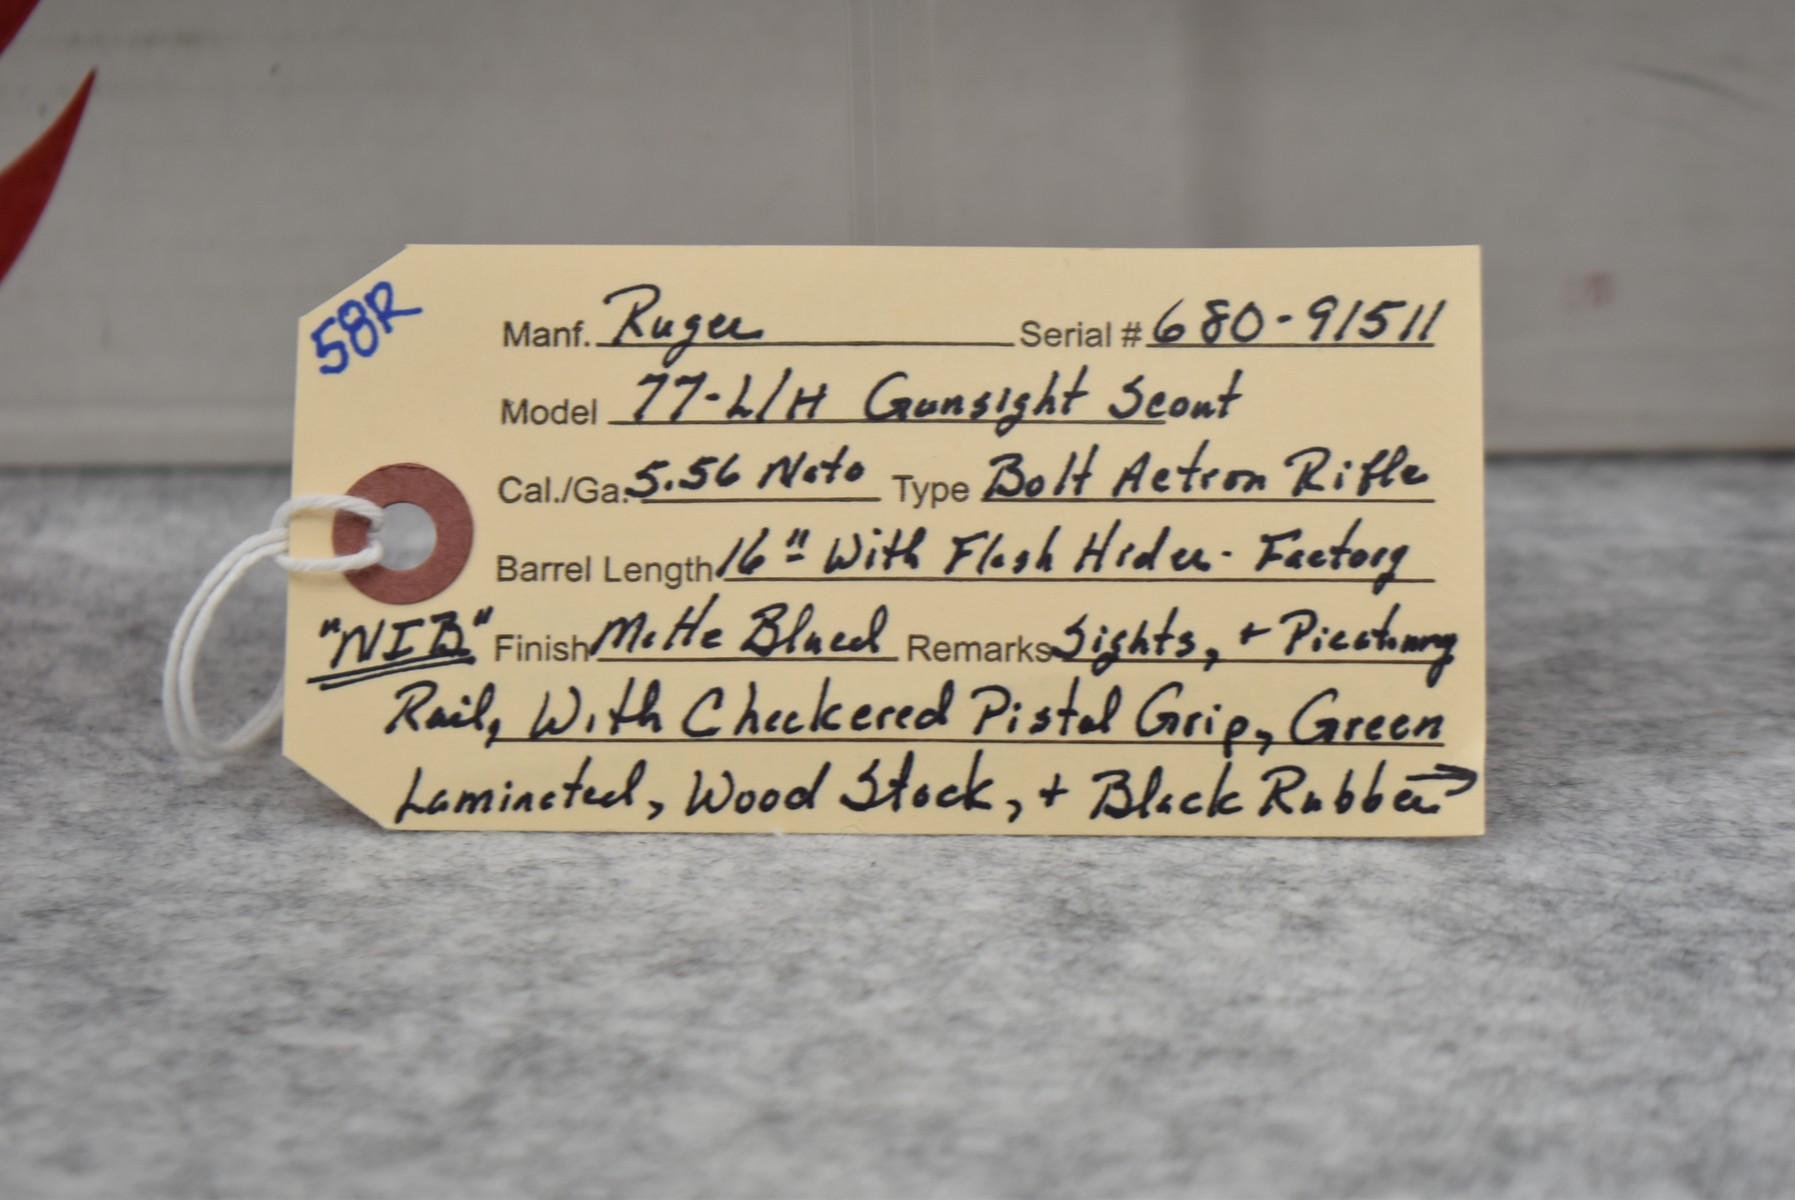 58R
Manf. Ruger Serial # 680-91511
Model 77-L/H Gunsight Scout
Cal./Ga. 5.56 Nato Type Bolt Action Rifle
Barrel Length 16" With Flash Hider - Factory
"NIB" Finish Matte Blued Remarks Sights, + Picatinny
Rail, With Checkered Pistol Grip, Green
Laminated, Wood Stock, + Black Rubber →